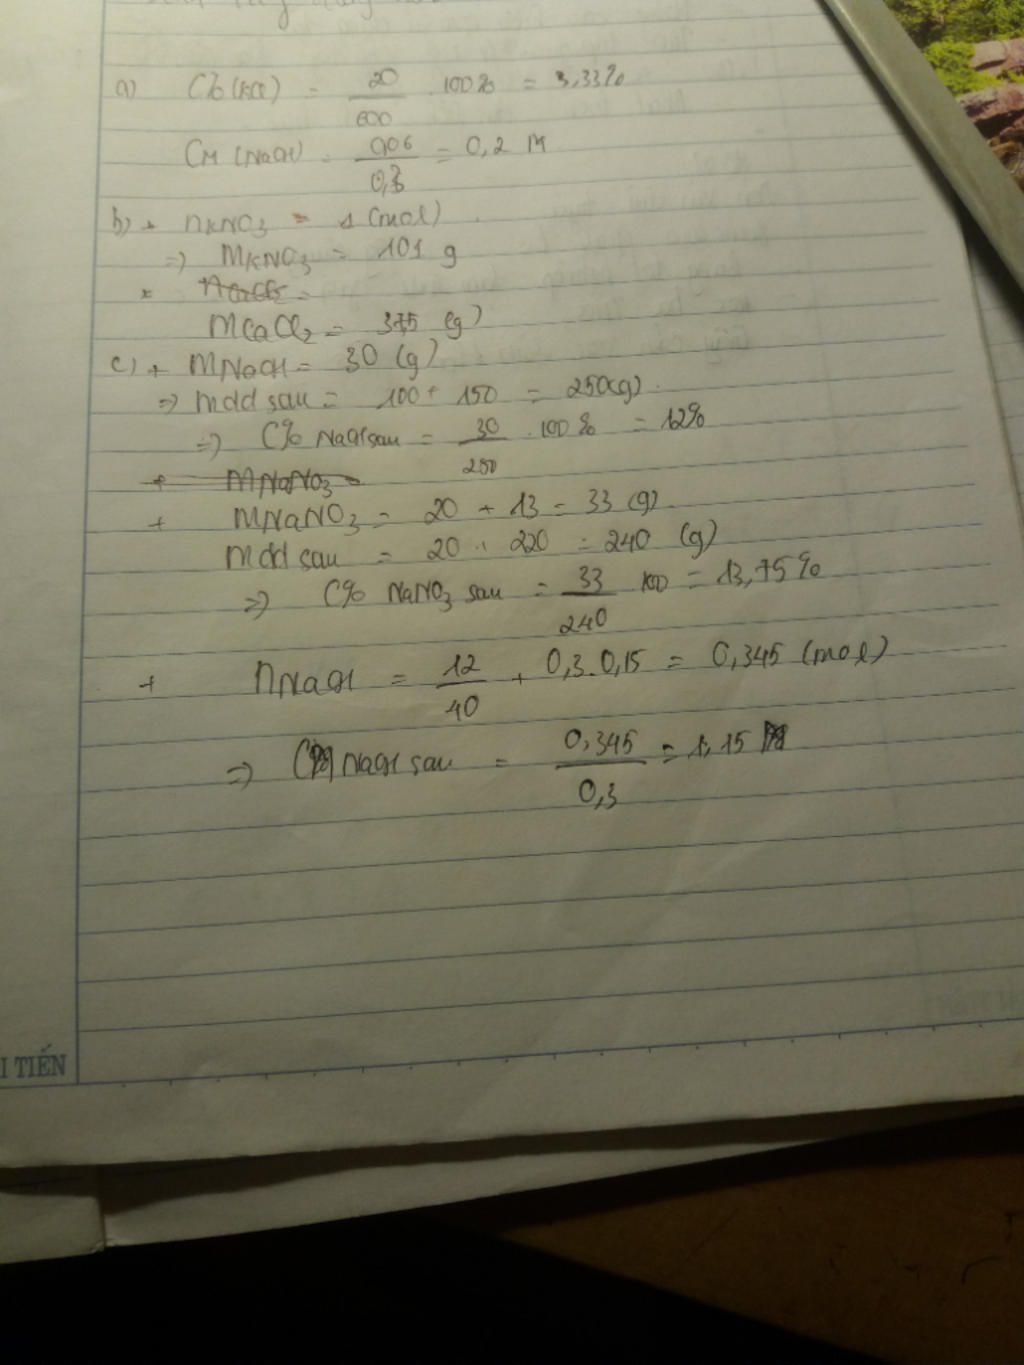 a) C% (KCl) = 20/600 . 100% = 3,33%
CM (NaOH) = 0,06/0,3 = 0,2 M
b) + nKNO3 = 1 (mol)
=> MKNO3 = 101 g
MCaCl2 = 37,5 (g)
c) + MNaOH = 30 (g)
=> mdd sau = 100 + 150 = 250(g)
=> C% NaOH sau = 30/250 . 100% = 12%
+ MNaNO3 =
+ MNaNO3 = 20 + 13 = 33 (g)
Mdd sau = 20 + 220 = 240 (g)
=> C% NaNO3 sau = 33/240 100 = 13,75%
+ nNaOH = 12/40 + 0,3.0,15 = 0,345 (mol)
=> CM NaOH sau = 0,345/0,3 = 1,15 M
I TIẾN